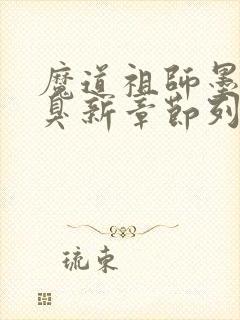 魔道祖師墨
臭新章節列
琉束